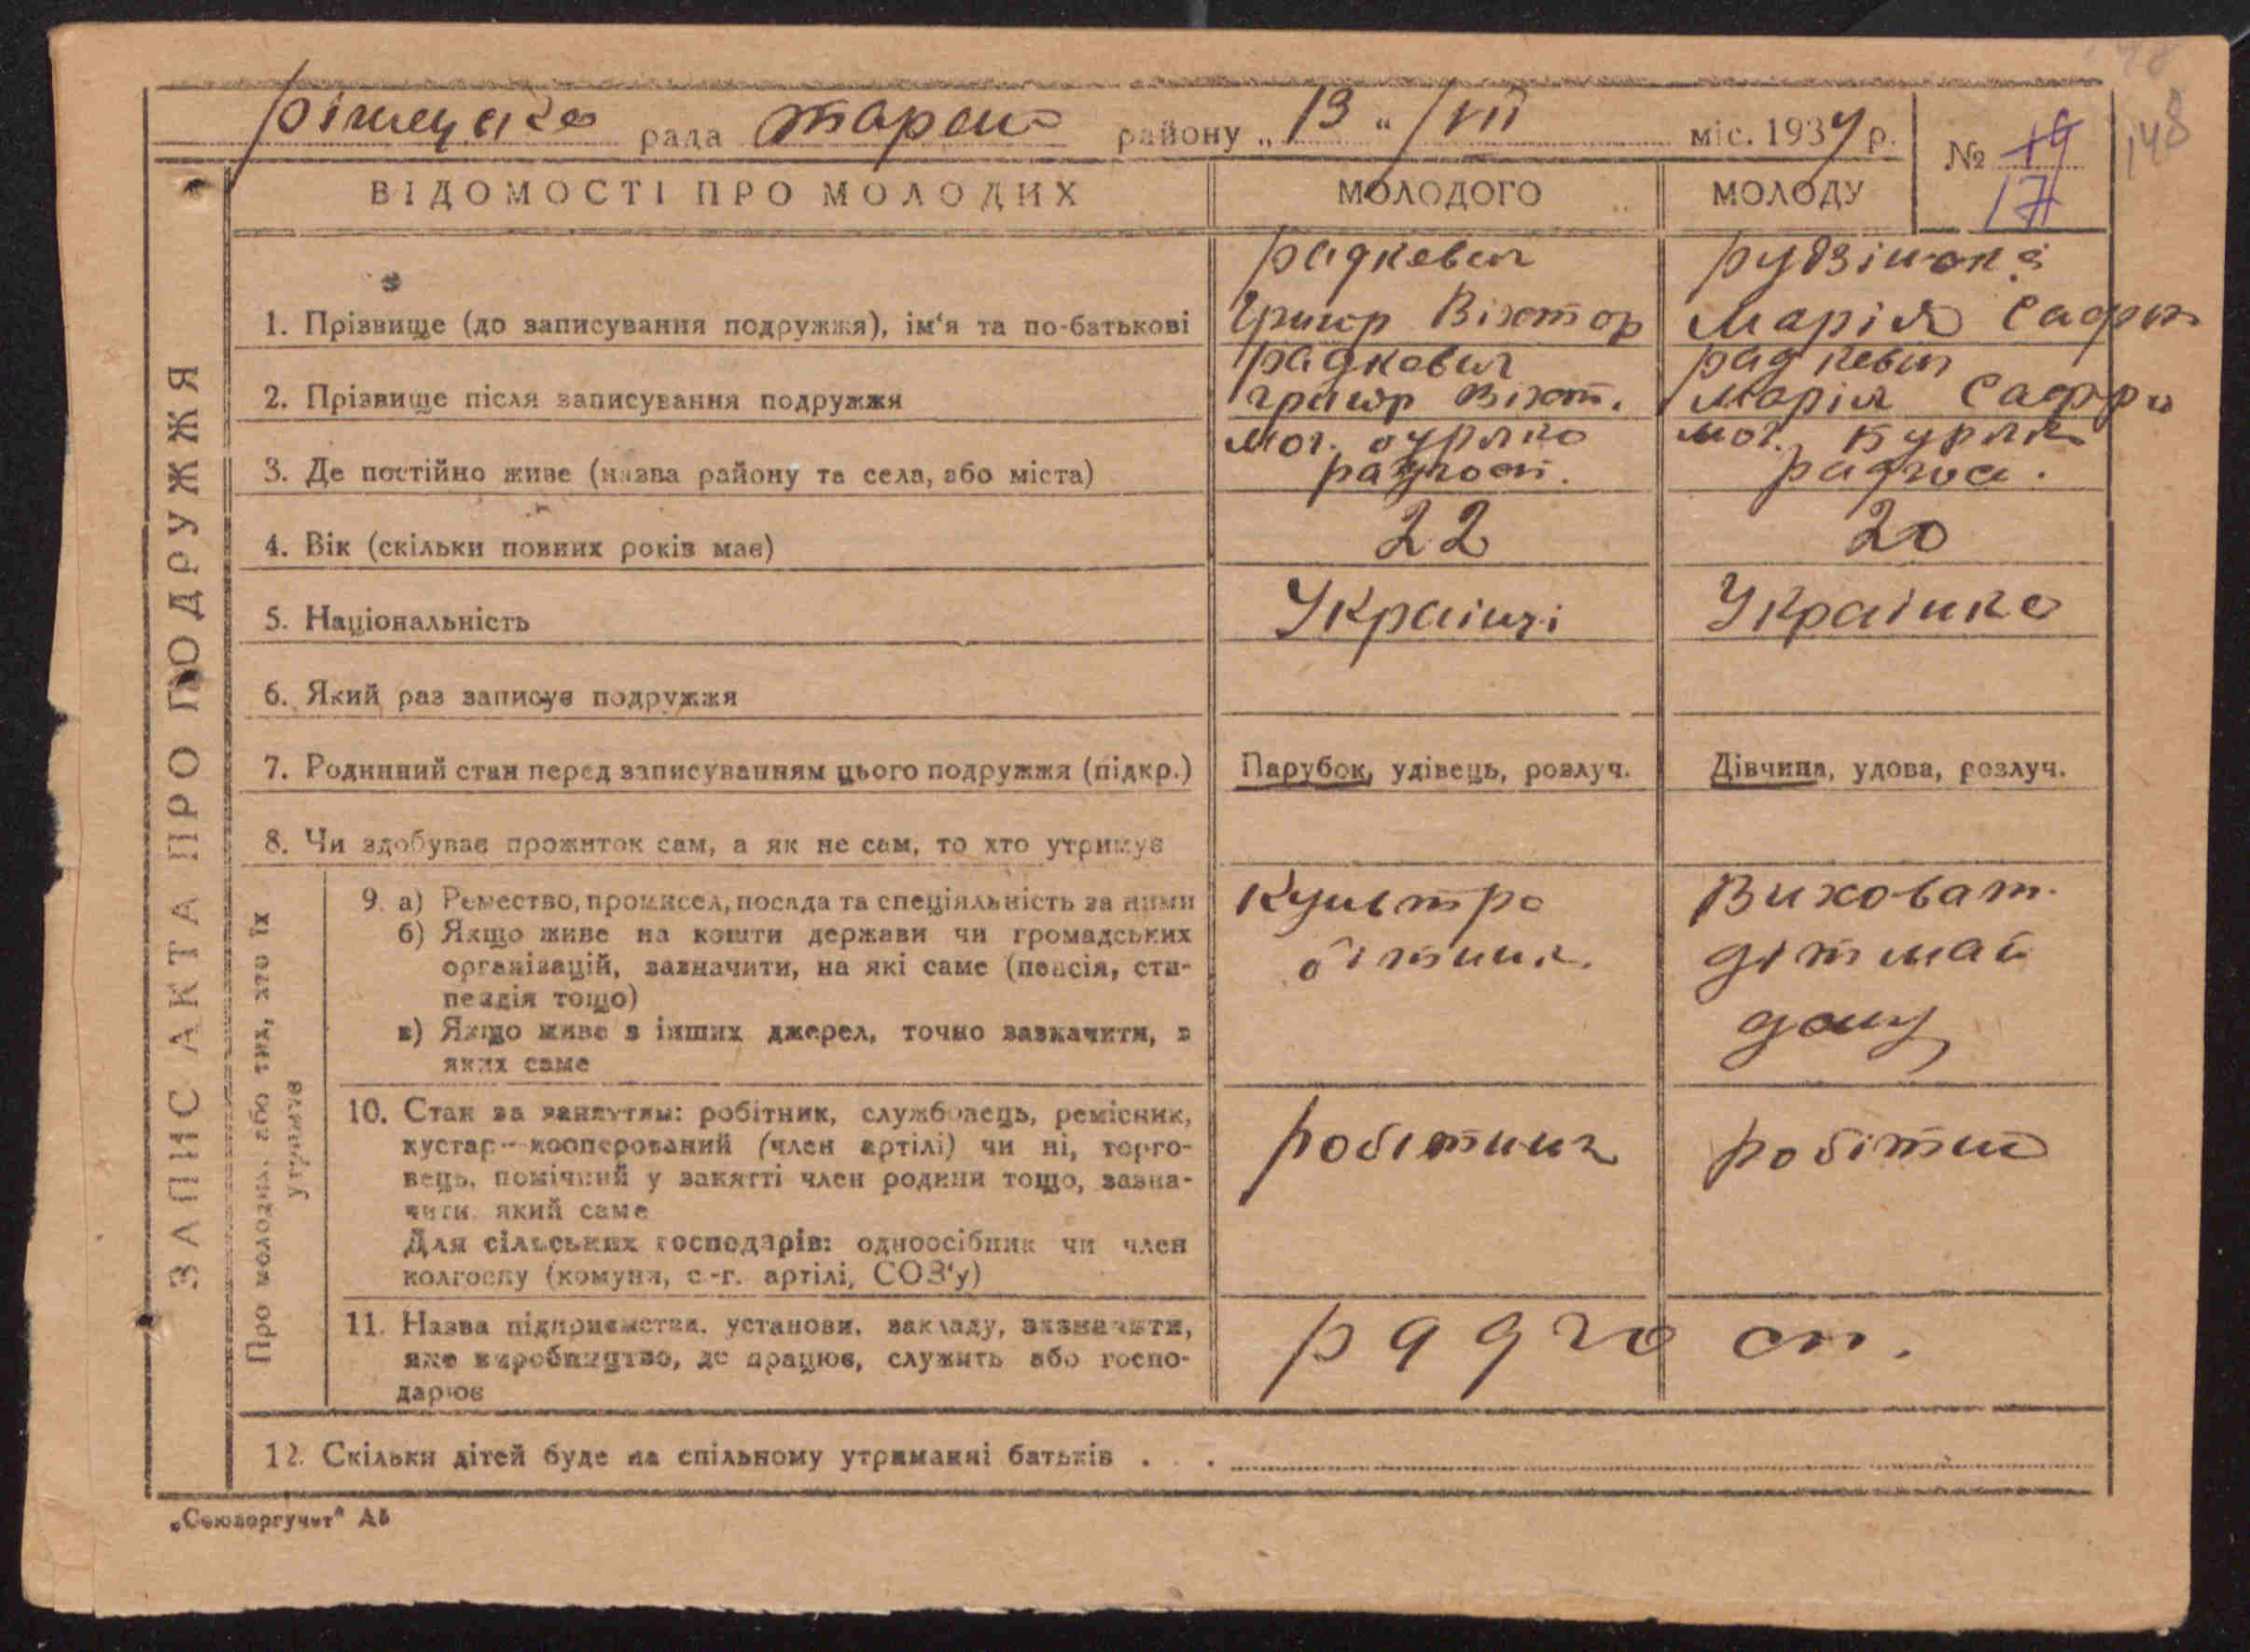 рада район у „ 13 “ VII міс. 1934 р.
№ 19
17
148
ВІДОМОСТІ ПРО МОЛОДИХ МОЛОДОГО МОЛОДУ
ЗАПИС АКТА ПРО ПОДРУЖЖЯ
Радкевич
1. Прізвище (до записування подружжя), ім‘я та по-батькові Григор Віктор Марія Сафр
Радкевич Радкевич
2. Прізвище після записування подружжя Григор Вікт. Марія Сафр
3. Де постійно живе (назва району та села, або міста) Радгосп.
4. Вік (скільки повних років має) 22 20
5. Національність Українці Українка
6. Який раз записує подружжя
7. Родинний стан перед записуванням цього подружжя (підкр.) Парубок, удівець, розлуч. Дівчина, удова, розлуч.
8. Чи здобуває прожиток сам, а як не сам, то хто утримує
Про молодих, або тих, хто їх утримує
9. а) Ремество, промисел, посада та спеціяльність за ними Культро Виховат.
б) Якщо живе на кошти держави чи громадських
організацій, зазначити, на які саме (пенсія, сти- бітник.
пендія тощо)
в) Якщо живе з інших джерел, точно зазначити, з дому
яких саме
10. Стан за заняттям: робітник, службовець, ремісник,
кустар—кооперований (член артілі) чи ні, торго- робітник робітни
вець, помічний у занятті член родини тощо, зазна-
чити, який саме
Для сільських господарів: одноосібник чи член
колгоспу (комуни, с.-г. артілі, СОЗ‘у)
11. Назва підприємства, установи, закладу, зазначити,
яке виробництво, де працює, служить або госпо- радгосп.
дарює
12. Скільки дітей буде на спільному утриманні батьків . . .
„Союзоргучет“ АБ